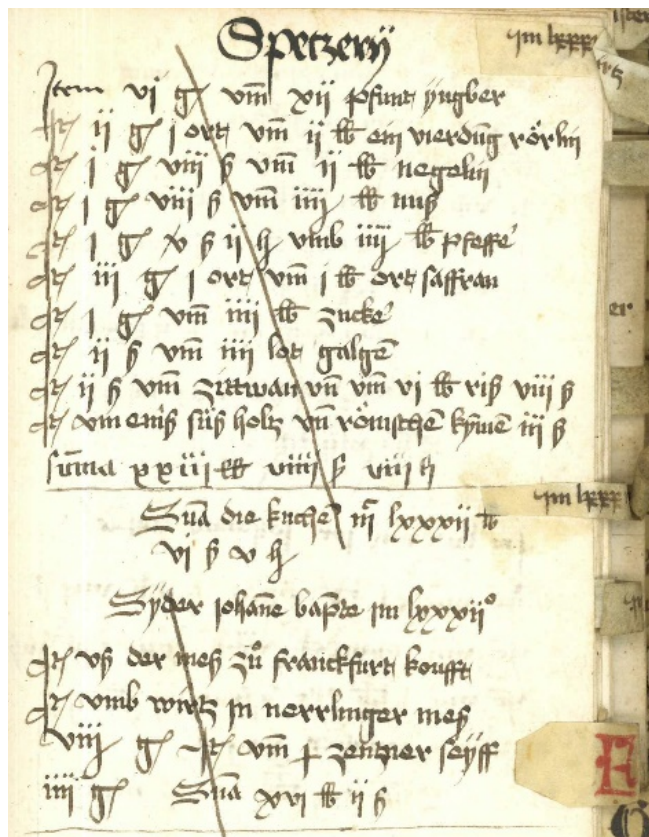 Spetzerÿ
Item vi g vm̄ xii pfunt ÿngber
It ii g i ort vm̄ ii lb ein vierdūg rörlin
It i g viii ß vm̄ ii lb negelin
It i g viii ß vm̄ iiii lb nuß
It i g v ß ii h vmb iiii lb pfeffe'
It iii g i ort vm̄ i lb ort saffran
It i g vm̄ iiii lb zucke'
It ii ß vm̄ iiii lot galgē
It ii ß vm̄ zittwan vn̄ vm̄ vi lb riß viii ß
It vm süß holtz vn̄ römschē kÿmē iii ß
sūma lb viiii ß viii h
Sūa die kuchē lxxxii lb
vi ß v h
Sÿder iohāne bapte im lxxxiiº
It vß der meß zů franckfurt koufft
It vmb wirtz in nerrlinger meß
viii g It vm̄ i zentner seÿff
iiii g Sūa xvi lb ii ß
im lxxx
im lxxx
er
E